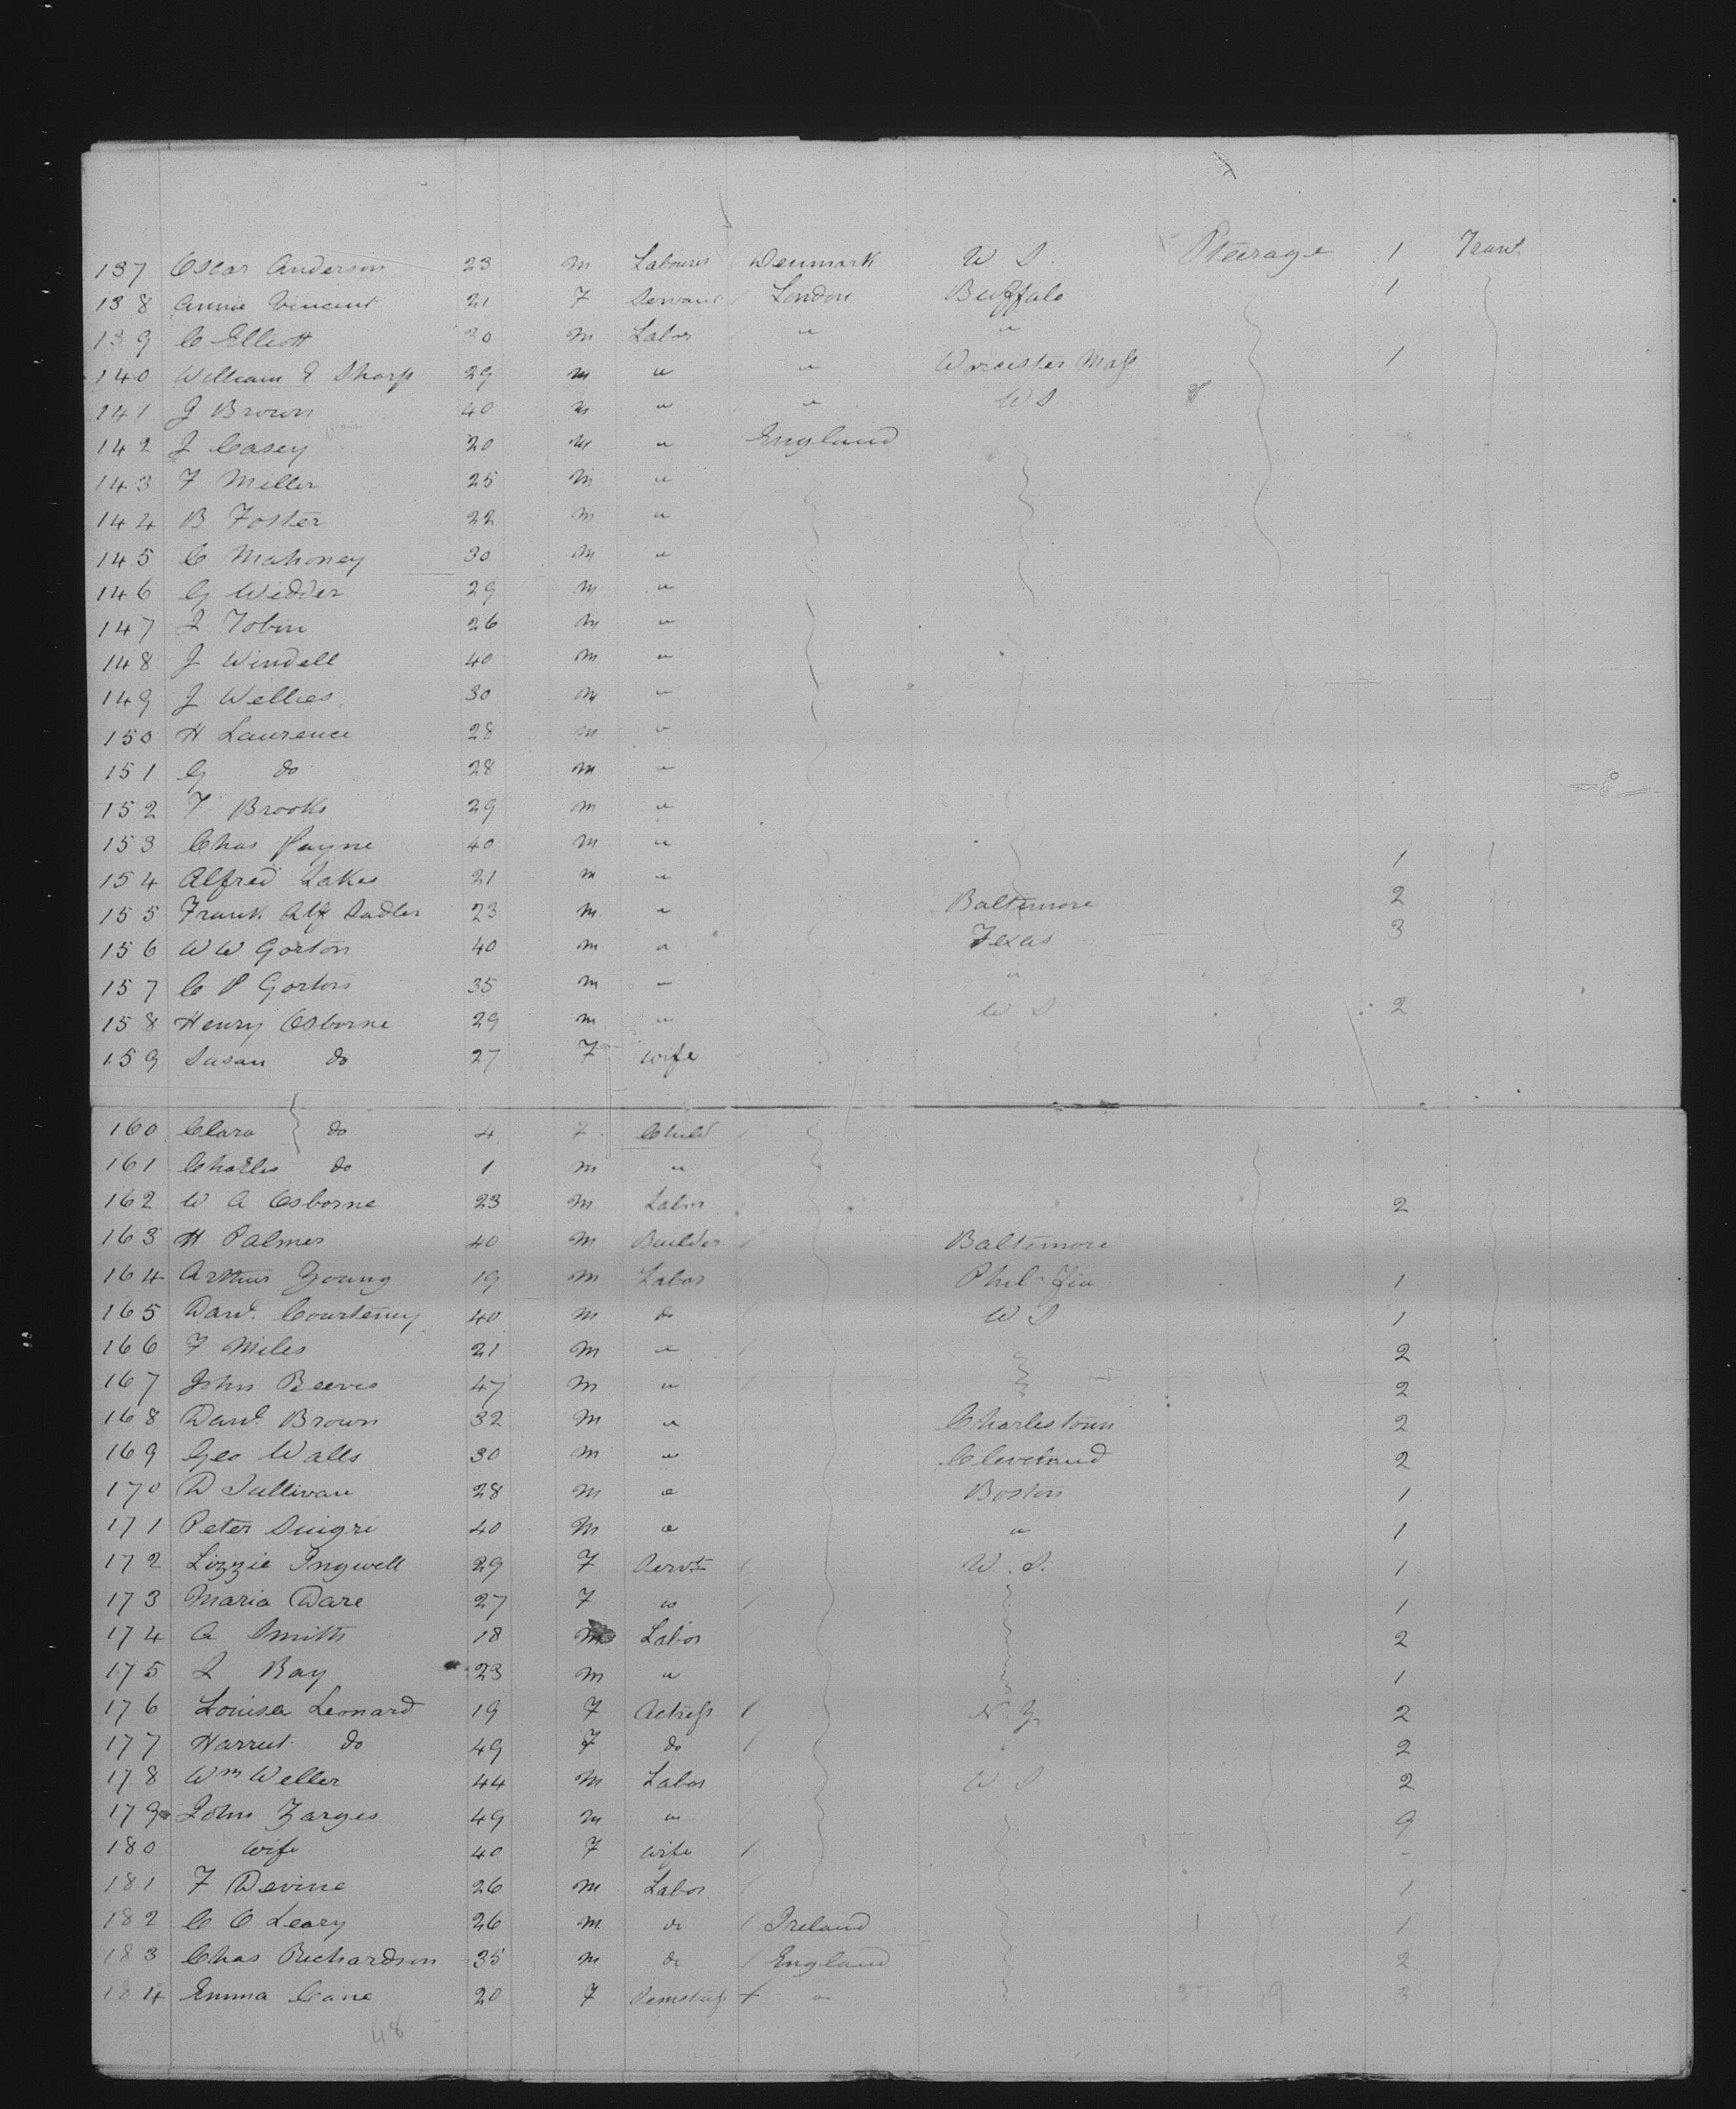 137 Oscar Anderson 23 m Labourer Denmark U S Steerage 1 Trans.
138 Annie Vincent 21 F Servant London Buffalo 1
139 C Elliott 30 m Labor " "
140 William E Sharp 29 m " " Worcester Mass 1
141 J Brown 40 m " " U S
142 J Casey 20 m " England
143 F Miller 25 m "
144 B Foster 22 m "
145 C Mahoney 30 m "
146 G Widder 29 m "
147 J Tobin 26 m "
148 J Windell 40 m "
149 J Wellies 30 m "
150 H Laurence 28 m "
151 G do 28 m "
152 T Brooks 29 m "
153 Chas Payne 40 m " 1
154 Alfred Lakes 21 m "
155 Frank Alf Sadler 23 m " Baltimore 2
156 W W Gorton 40 m " Texas 3
157 C P Gorton 35 m " "
158 Henry Osborne 29 m " U S 2
159 Susan do 27 F wife
160 Clara do 4 F Child
161 Charles do 1 m "
162 W A Osborne 23 m Labor 2
163 H Palmer 40 m Builder Baltimore
164 Arthur Young 19 m Labor 1
165 Danl. Courteney 40 m do U S 1
166 F Miles 21 m " 2
167 John Reeves 47 m " 2
168 Danl. Brown 32 m " Charlestown 2
169 Geo Walls 30 m " Cleveland 2
170 D Sullivan 28 m " Boston 1
171 Peter 40 m " " 1
172 Lizzie Ingwell 29 F Servt U. S. 1
173 Maria Dare 27 F " 1
174 A Smith 18 m Labor 2
175 J Bay 23 m " 1
176 Louisa Leonard 19 F Actress N. Y. 2
177 Harriet do 49 F do " 2
178 Wm Weller 44 m Labor U S 2
179 John Zarges 49 m " 9
180 wife 40 F wife -
181 F Devine 26 m Labor 1
182 C O Leary 26 m do Ireland 1
183 Chas Richardson 35 m do England 2
184 Emma Cane 20 F Semstress + " 3
48